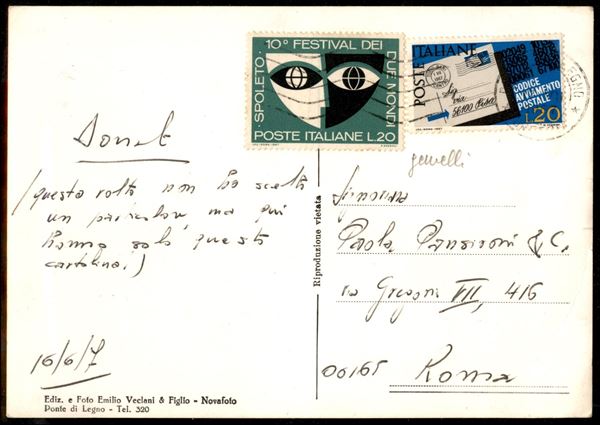 10° FESTIVAL DEI
DUE MONDI
SPOLETO
POSTE ITALIANE L.20
POSTE ITALIANE
CODICE
AVVIAMENTO
POSTALE
56100 Pisa
L.20
gemelli
(questa volta non ho scelto
un particolare, ma qui
hanno solo questa
cartolina!)
16/6/7
Riproduzione vietata
Paola
via Gregorio VII, 416
00165 Roma
Ediz. e Foto Emilio Veclani & Figlio - Novafoto
Ponte di Legno - Tel. 320